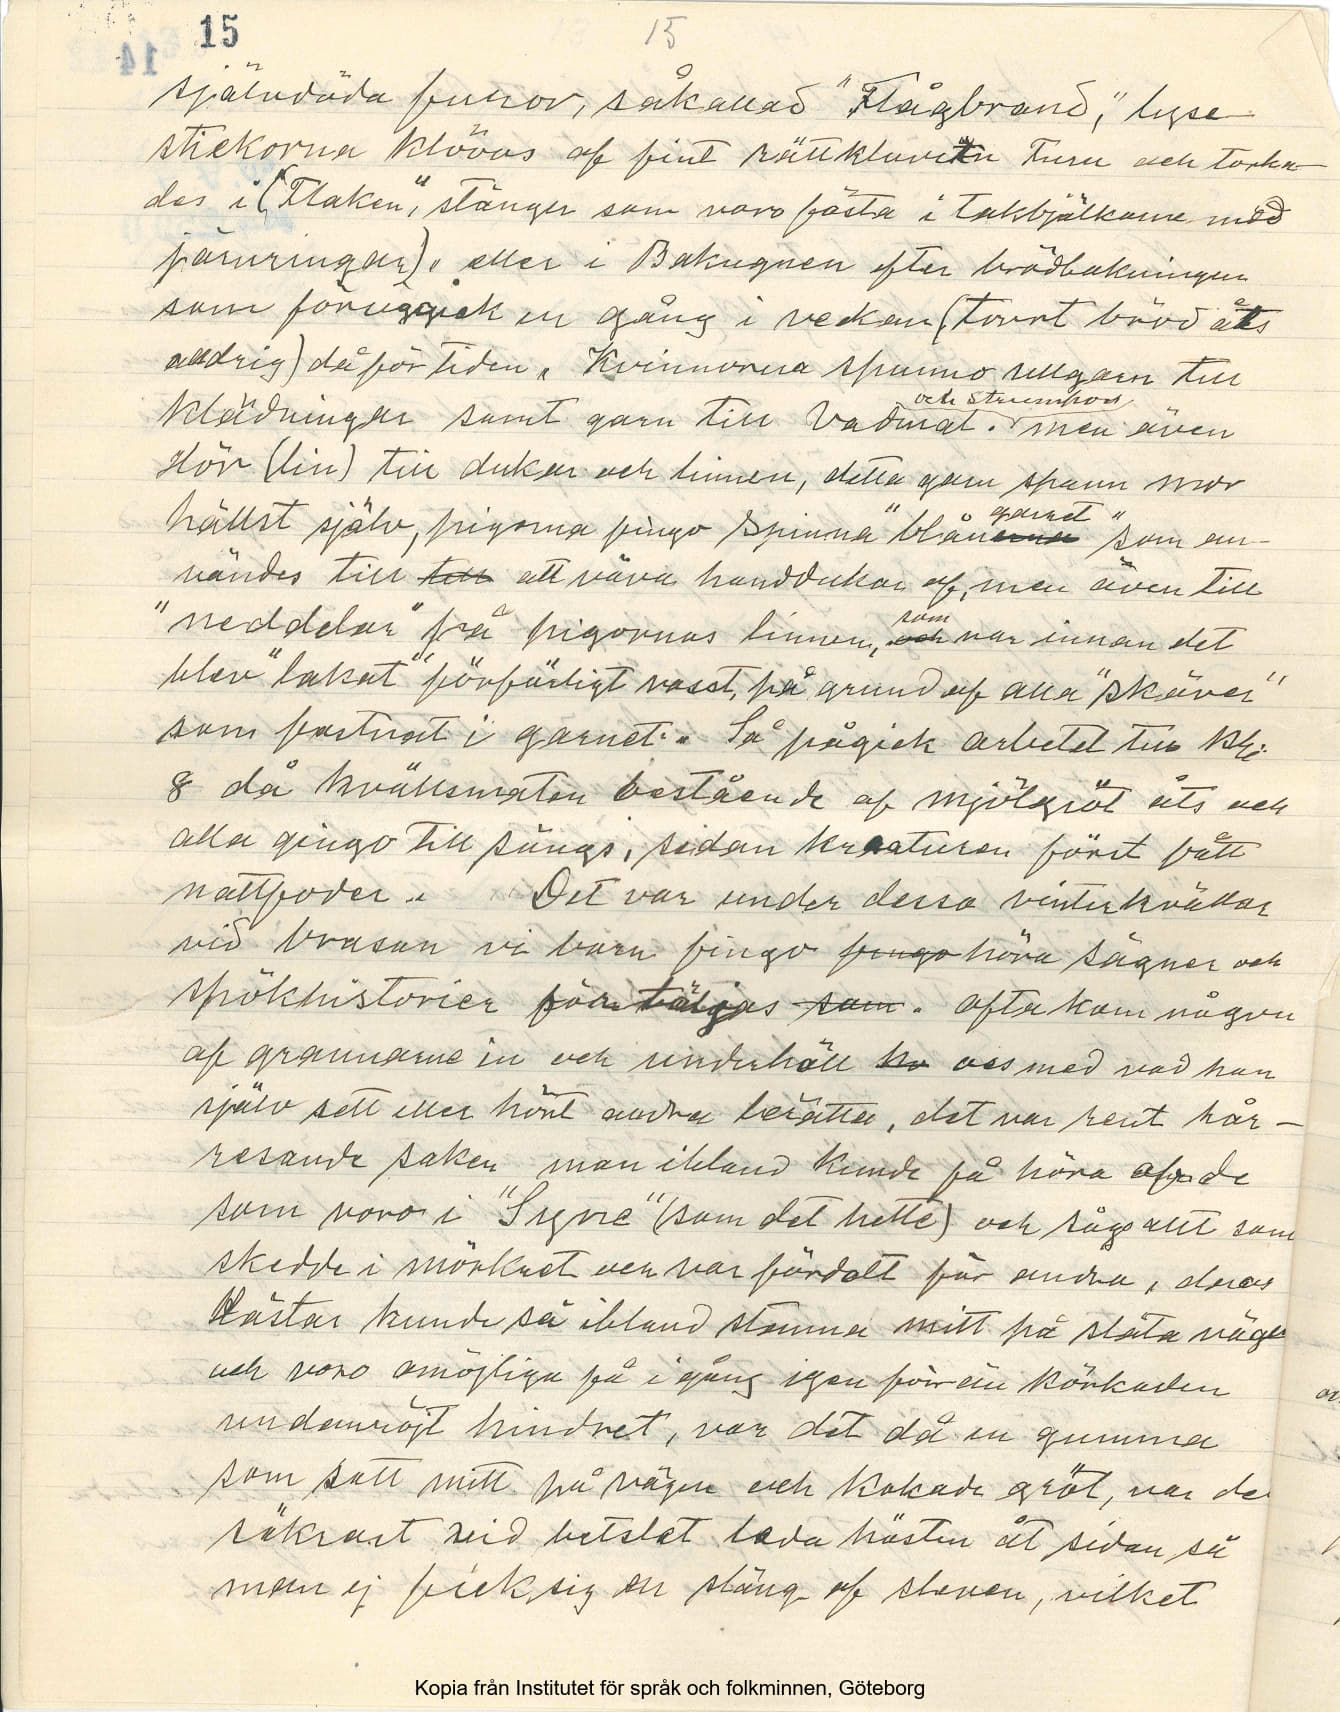 15
15
14
självdöda furor, såkallad "Flågbrand," lyse-
stickorna klövos af fint rättkluven Furu och torka-
des i ("Flaken", stänger som voro fästa i takbjälkarne med
järnringar). eller i Bakugnen efter brödbakningen
som föregick en gång i veckan (torrt bröd åts
aldrig) då för tiden. Kvinnorna spunno ullgarn till
och strumpor
klädningar samt garn till Vadmal. men även
Hör (lin) till dukar och linnen, detta garn spann mor
garnet
hällst själv, pigorna fingo spinna "blånerna" som an-
vändes till till att väva handdukar af, men även till
som
"neddelar" på pigornas linnen, och var innan det
blev "lakat" förfärligt vasst, på grund af alla "skäver"
som fastnat i garnet. Så pågick arbetet till kl:
8 då kvällsmaten bestående af mjölgröt åts och
alla gingo till sängs, sedan kreaturen först fått
nattfoder. Det var under dessa vinterkvällar
vid brasan vi barn fingo fingo höra sägner och
spökhistorier förtäljas som. ofta kom någon
af grannarne in och underhöll ho oss med vad han
själv sett eller hört andra berätta, det var rent hår-
resande saker man ibland kunde få höra af de
som voro i "Sygne" (som det hette) och såg allt som
skedde i mörkret och var fördolt för andra, deras
Hästar kunde så ibland stanna mitt på släta vägen
och voro omöjliga få i gång igen förrän körkaden
undanröjt hindret, var det då en gumma
som satt mitt på vägen och kokade gröt, var de
säkrast vid betslet leda hästen åt sidan så
man ej fick sig en släng af sleven, vilket
Kopia från Institutet för språk och folkminnen, Göteborg